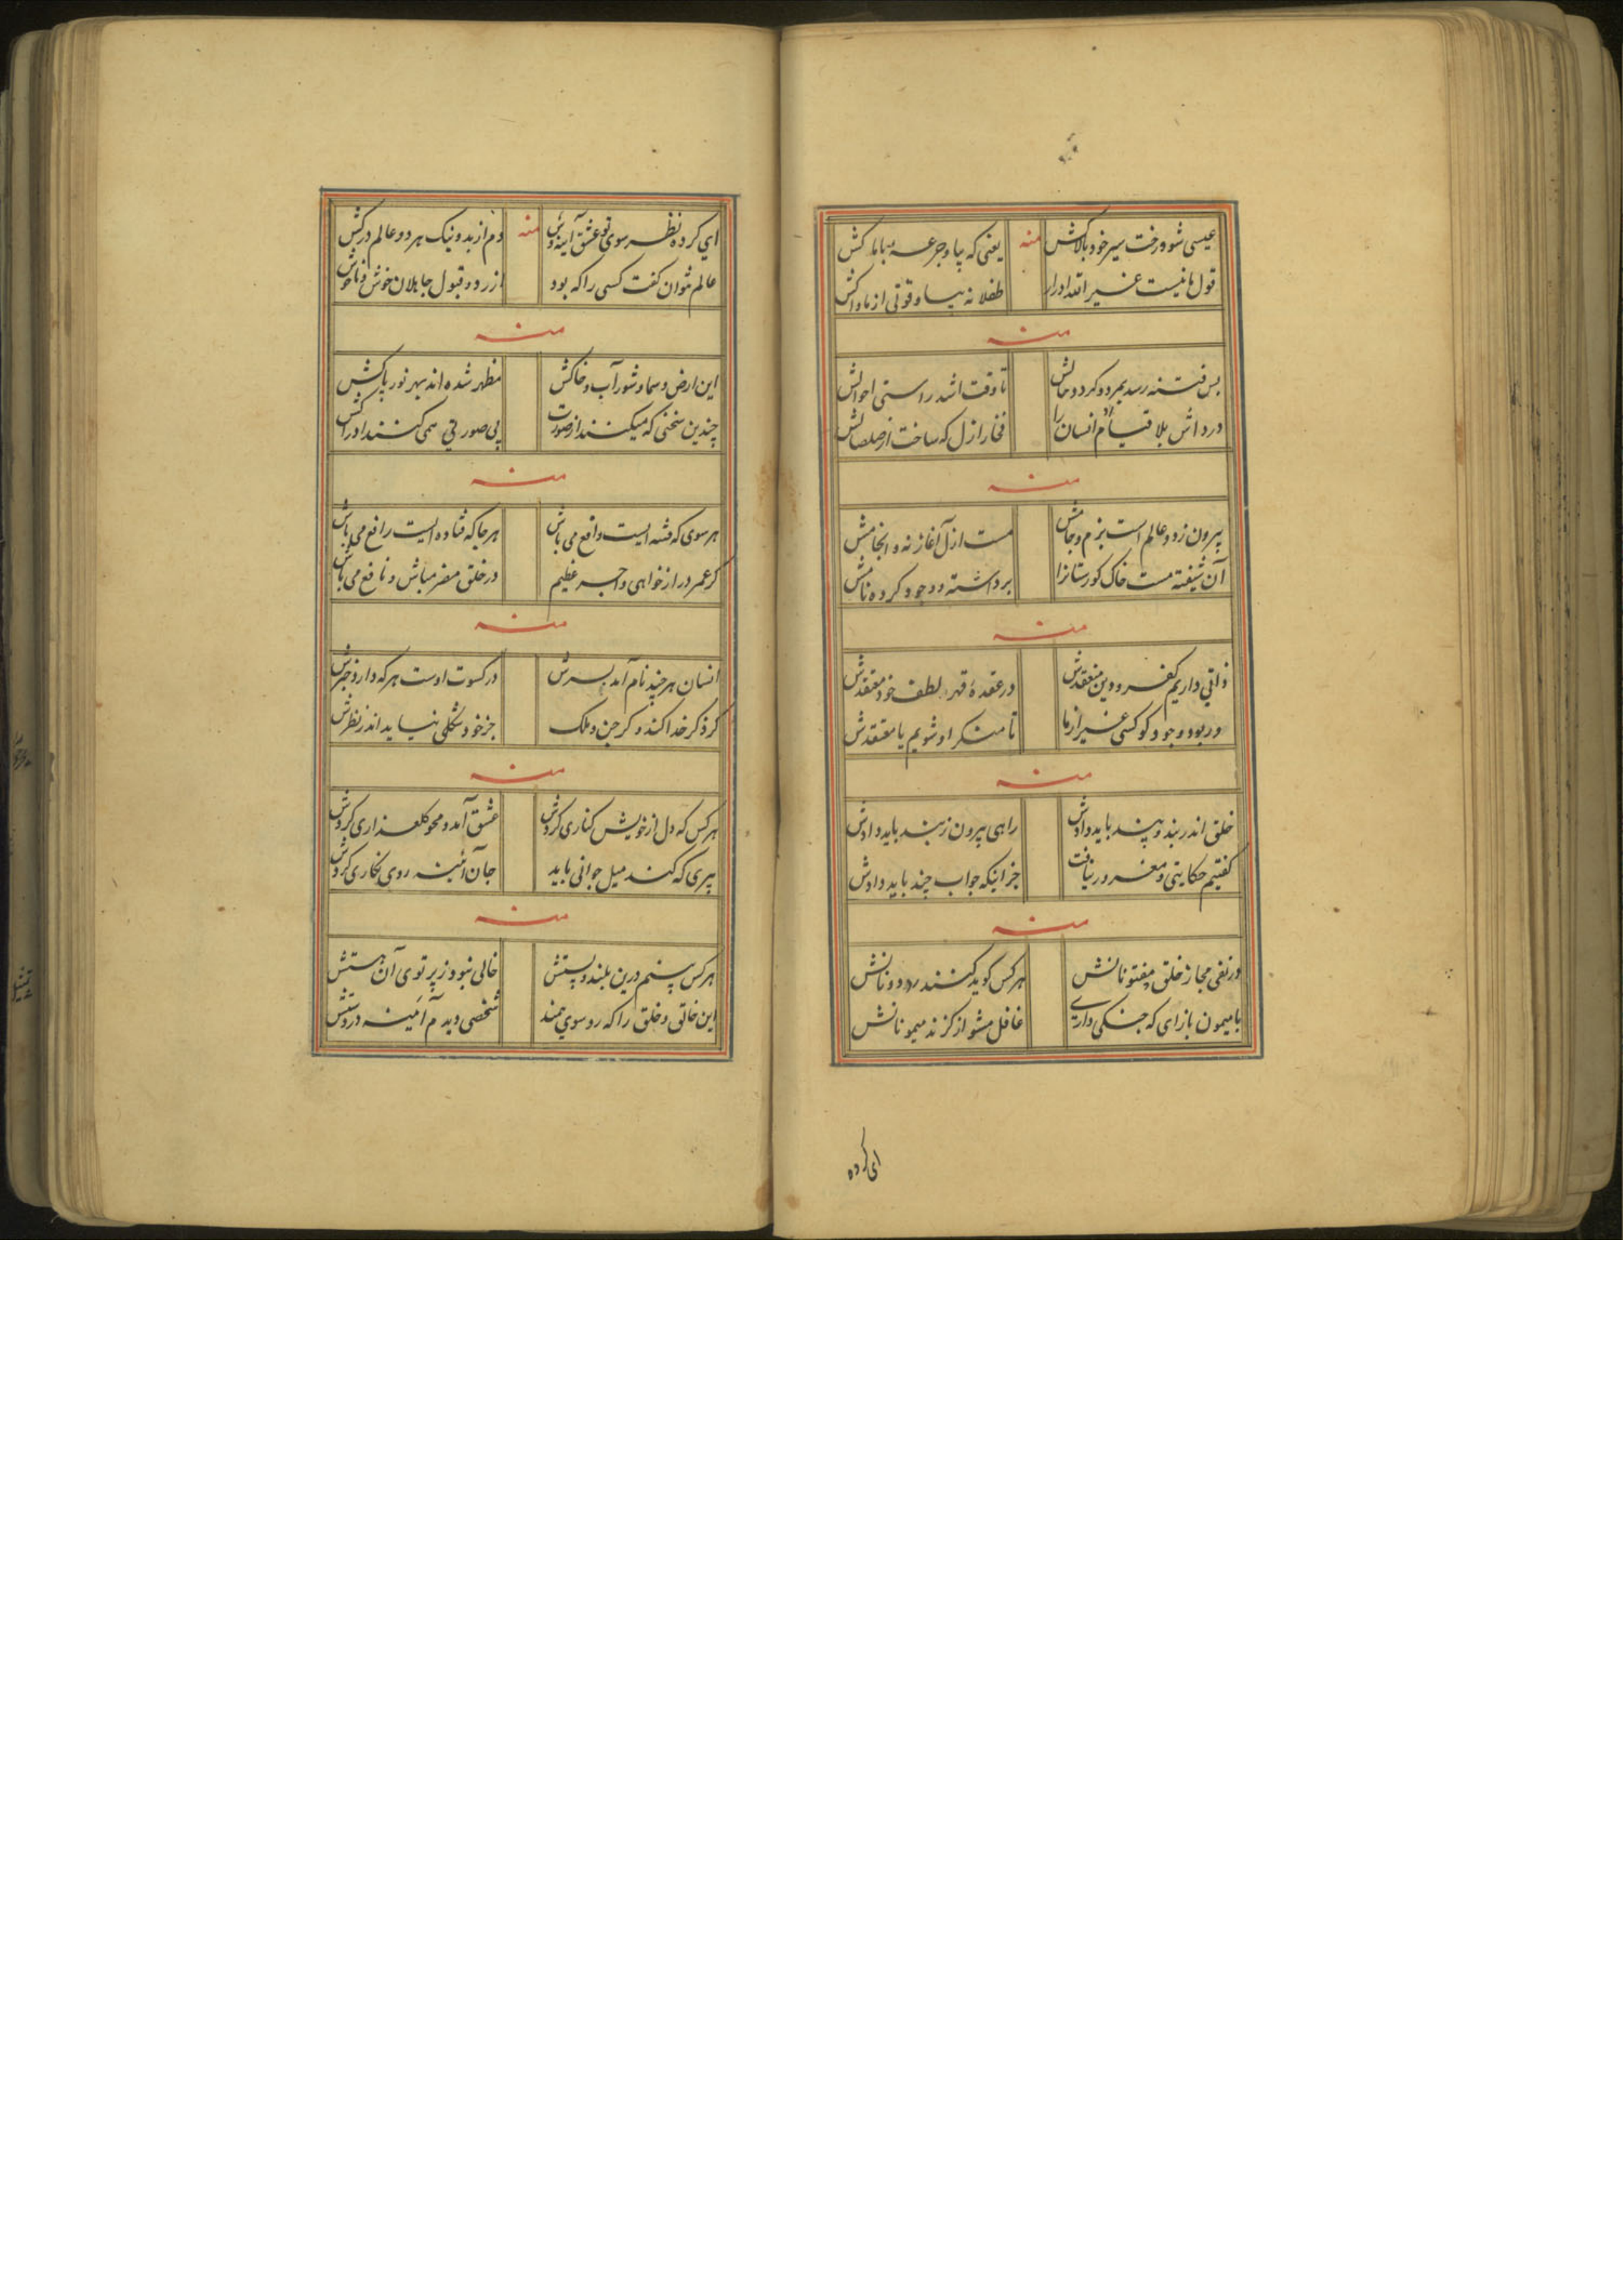 عیسی شو و رخت سیر خود بالا کش منه یعنی که بیا و جرعهٔ با ما کش
قول ما نیست غیر الله ادرا طفلانه بیا و قوتی از ما کش
منه
بس فتنه رسد بمرد و کرد و حالش تا وقت اشد راستی احوالش
درد اش بلا قیام انسان را فخار ازل که ساخت از صلصالش
منه
بیرون ز دو عالم است بزم و جامش مست ازل آغاز نه و انجامش
آن شیفته مست خاک کورستانرا برداشته و وجود کرده نامش
منه
ذاتی داریم کفر و دین منعقدش در عقدهٔ قهر و لطف خود معتقدش
در بود و وجود کو کسی غیر از ما تا منکر او شویم یا معتقدش
منه
خلق اندر بند و پند باید دادش راهی بیرون ز بند باید دادش
کفتیم حکایتی و مغرور نیافت جز اینکه جواب چند باید دادش
منه
در نفی مجاز خلق مفتونانش هر کس کوید کشند دونانش
با میمون باز ای که جنکی داری غافل مشو از کزند میمونانش
ای کرده
ای کرده نظر سوی عشق آینه وش منه دم از بد و نیک هر دو عالم درکش
عالم نتوان کفت کسی را که بود از رد و قبول جاهلان خوش و ناخوش
منه
این ارض و سما و شور آب و خاکش مظهر شده اند بهر نور پاکش
چندین سخنی که میکنند از صورت بی صورتی همی کنند ادراکش
منه
هر سوی که فتنه ایست دافع می باش هر جا که فتاده ایست رافع می باش
کر عمر دراز خواهی و اجر عظیم در خلق مضر مباش و نافع می باش
منه
انسان هر چند نام آمد بسرش در کسوت اوست هر که دارد خبرش
کر ذکر خدا کند و کر جن و ملک جز خود شکلی نیاید اندر نظرش
منه
هر کس که دل از خویش کناری کردش عشق آمد و محو کلعذاری کردش
پیری که کند میل جوانی باید جان آئینه روی نکاری کردش
منه
هر کس بینم درین بلند و پستش خالی نبود ز پرتوی آن هستش
این خالق و خلق را که رو سوی همند شخصی دیدم آینه در دستش